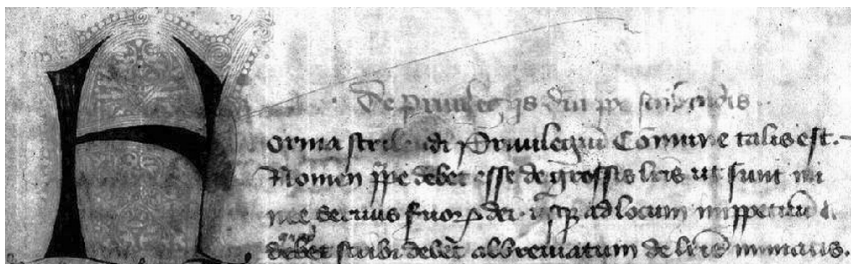 De priuilegijs dni ppe scribendis
F orma scribendi Priuilegium Comune talis est.
Nomen ppe debet esse de grossis lris ut sunt
seruus seruor dei ad locum
debet scribi debet abbreviatum de lris minutis.